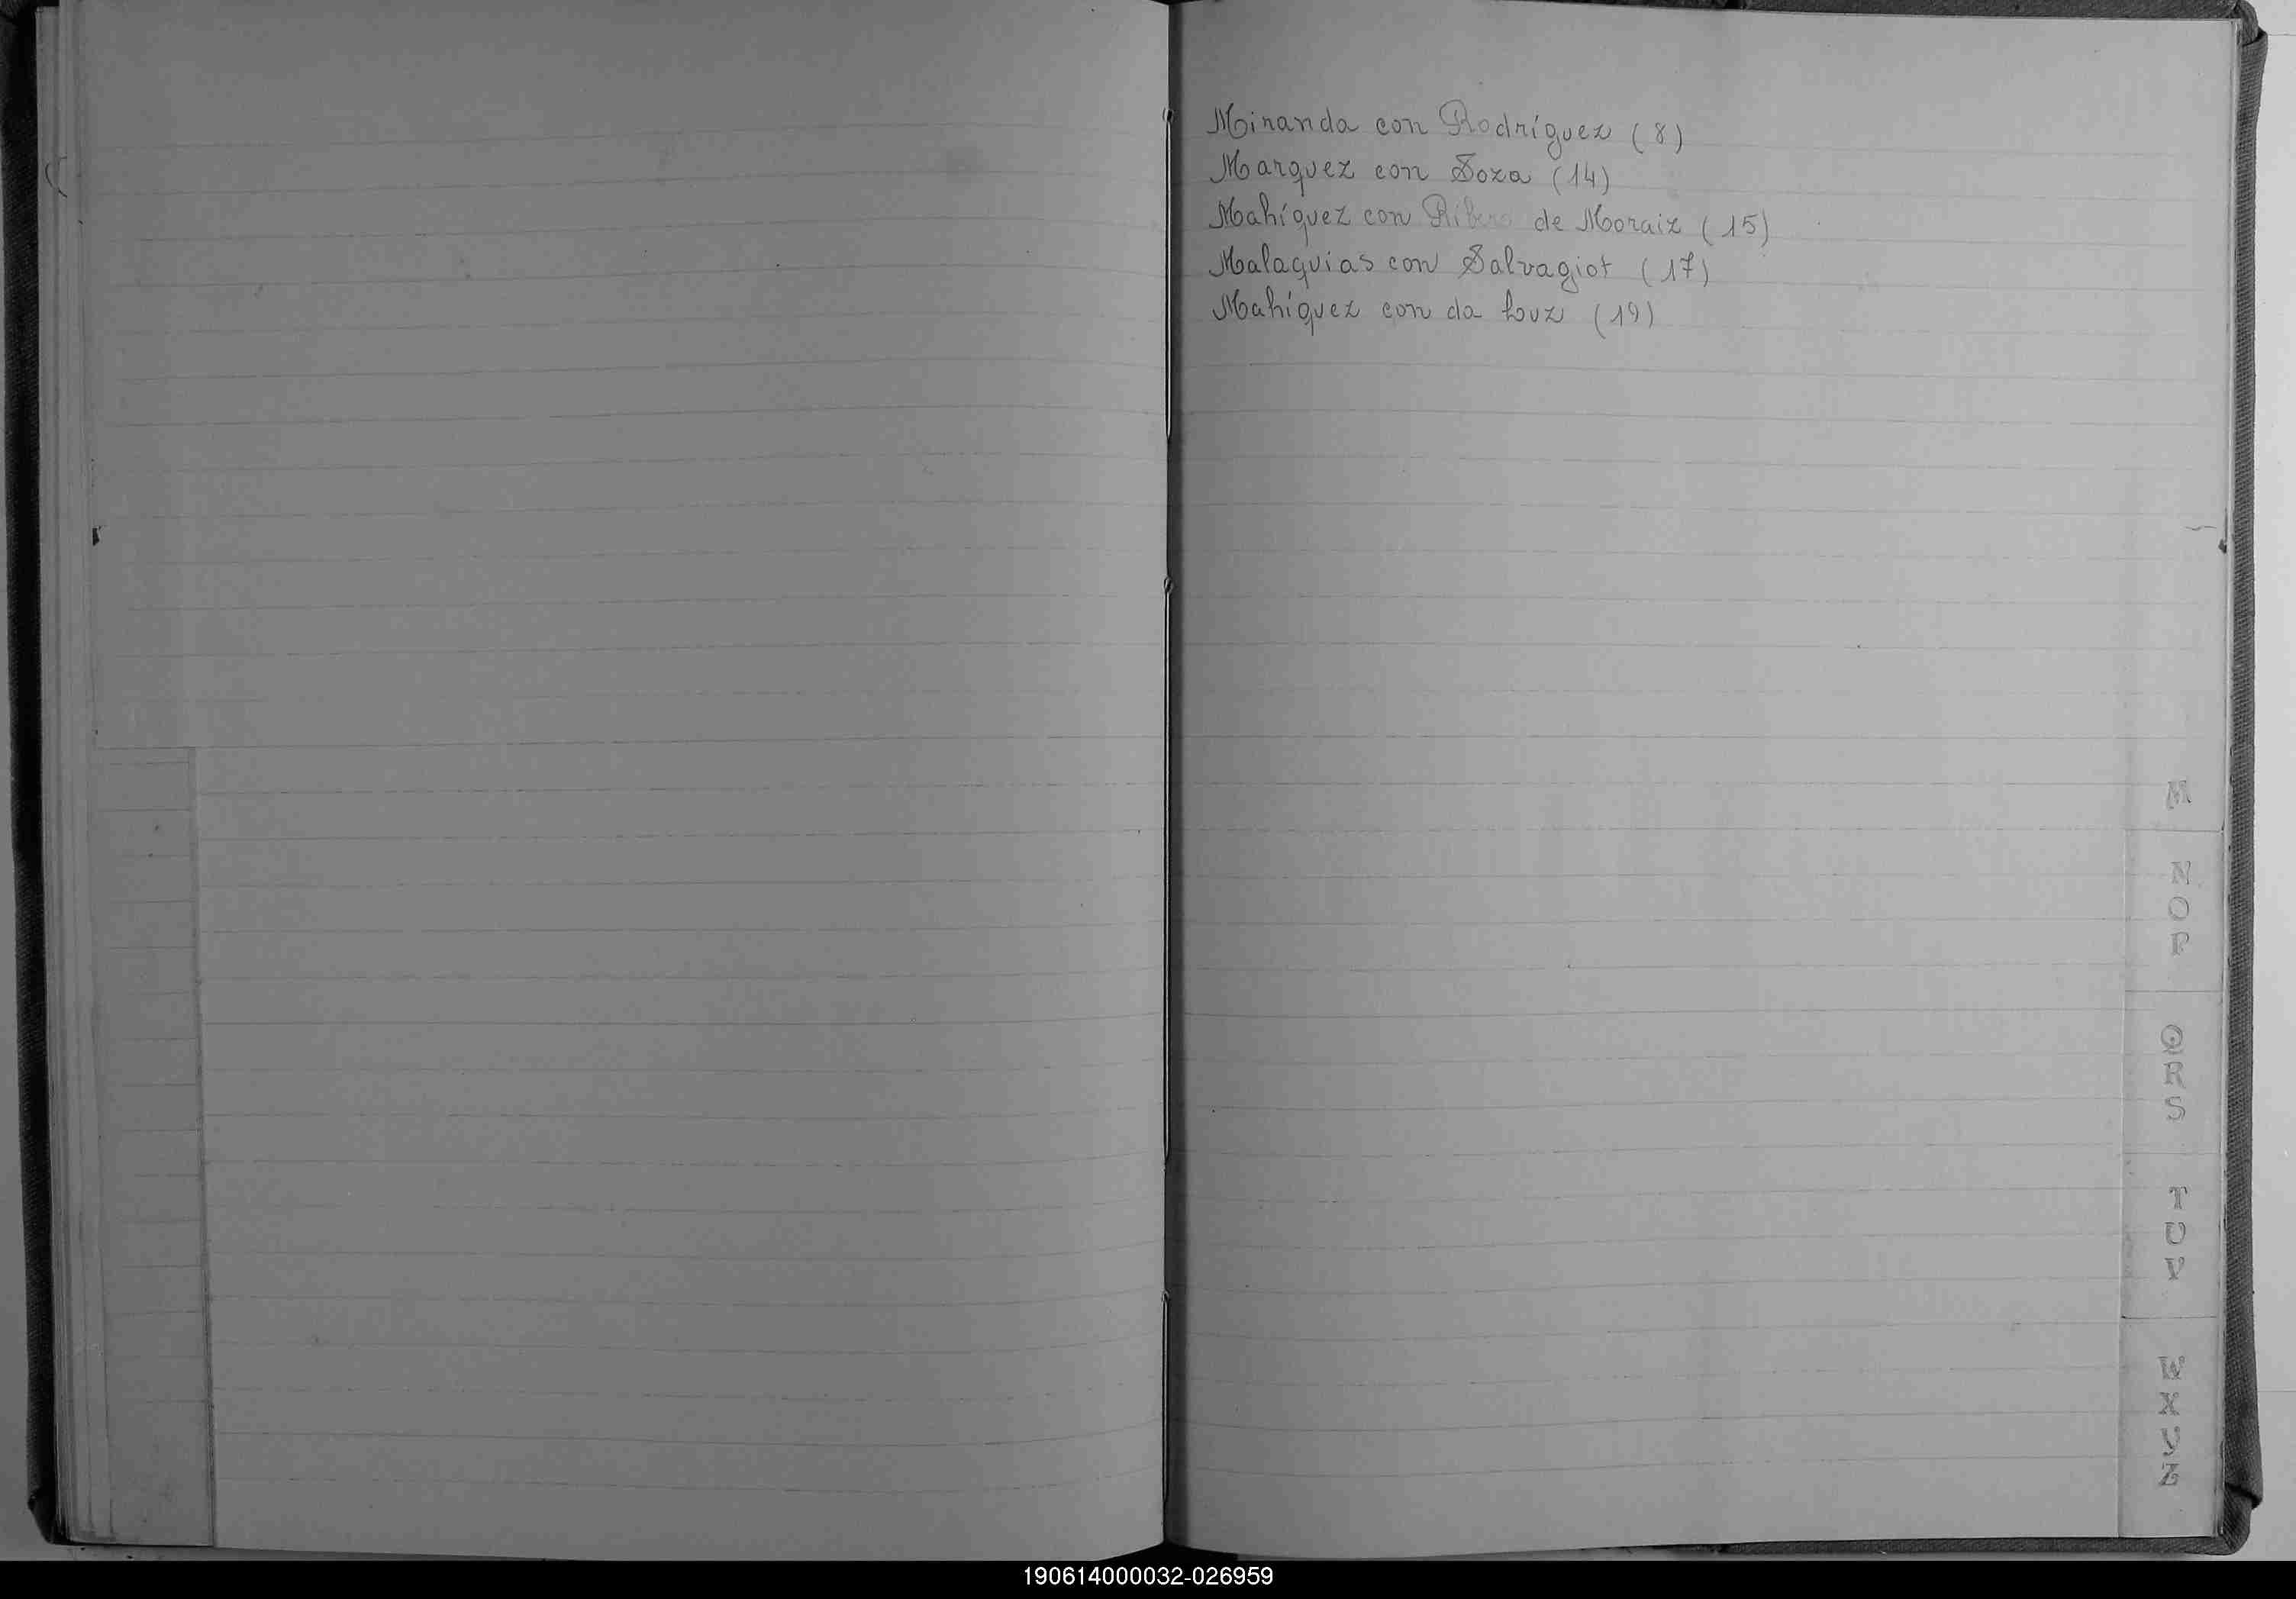 Miranda con Rodríguez (8)
Marquez con Soza (14)
Mahíquez con de Moraiz (15)
Malaquias con Salvagiot (17)
Mahíquez con da Louz (19)
M
N
O
P
Q
R
S
T
U
V
W
X
Y
Z
190614000032-026959